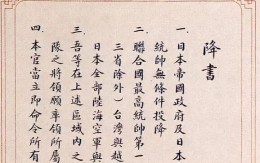 降書
一、日本帝國政府及日本
統帥無條件投降
二、聯合國最高統帥第一
三省除外）台灣與越
日本全部陸海空軍與
三、吾等在上述區域內之
隊之將領願率領所屬
四、本官當立即命令所有